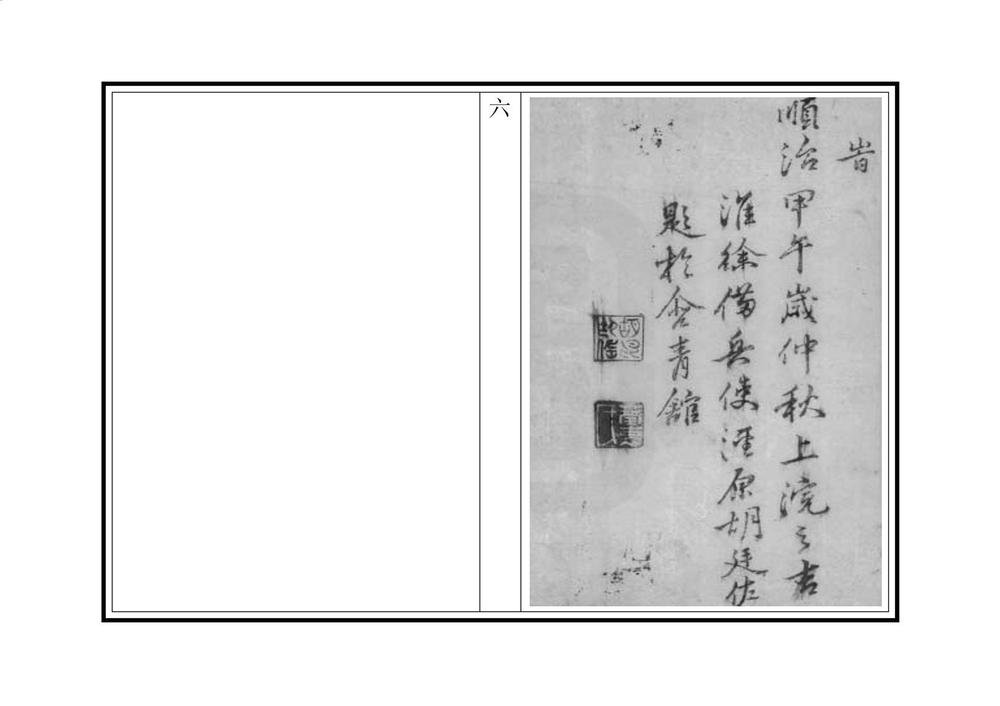 旹
順治甲午歲仲秋上浣之吉
淮徐備兵使涇原胡廷佐
題於含青館
六